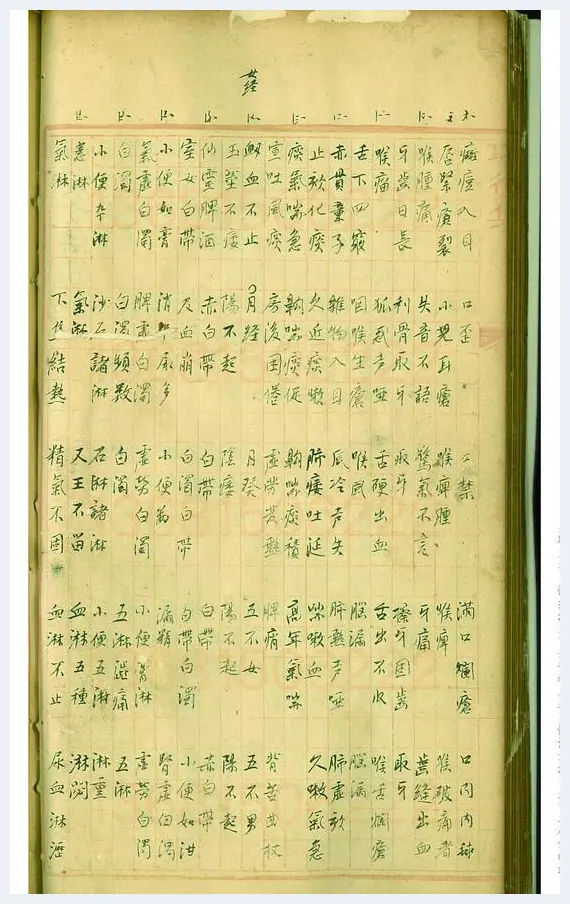 癍痘入目 口歪 口禁 滿口爛瘡 口內肉球
唇緊瘡裂 小兒耳瘡 喉痺腫 喉痺 喉破痛者
喉腫痛 失音不語 驚氣不言 牙痛 齒縫出血
牙齒日長 利骨取牙 疾牙 擦牙固齒 取牙
喉痛 狐惑声啞 舌硬出血 舌出不收 喉舌爛瘡
舌下四竅 咽喉生瘡 喉風 腦漏 腦漏
赤貫童子 雜物入目 冷声失 肺熱声啞 肺虛欬
止欬化痰 久近痰嗽 肺痿吐涎 喘嗽血 久嗽氣急
痰氣喘急 齁喘痰促 齁喘痰積 高年氣喘
宣吐風痰 房後困倦 虛劳发熱 脾痟 背苦曲杖
衂血不止 月経 月癸 五不女 五不男
玉莖不痿 陽不起 陰痿 陽不起 陽不起
仙靈脾酒 赤白帶 白帶 白帶 赤白帶
室女白帶 及血崩 白濁白帶 白帶白濁 小便如泔
小便如膏 消 尿多 小便 漏精 腎虛白濁
氣虛白濁 脾虛白濁 虛勞白濁 小便膏淋 虛勞白濁
白濁 白濁頻數 白濁 五淋澁痛 五淋
小便卒淋 沙石諸淋 石淋諸淋 小便五淋 淋重
淋 氣淋 又王不畄 血淋五種 淋閟
氣淋 下焦結熱 精氣不固 血淋不止 尿血淋瀝